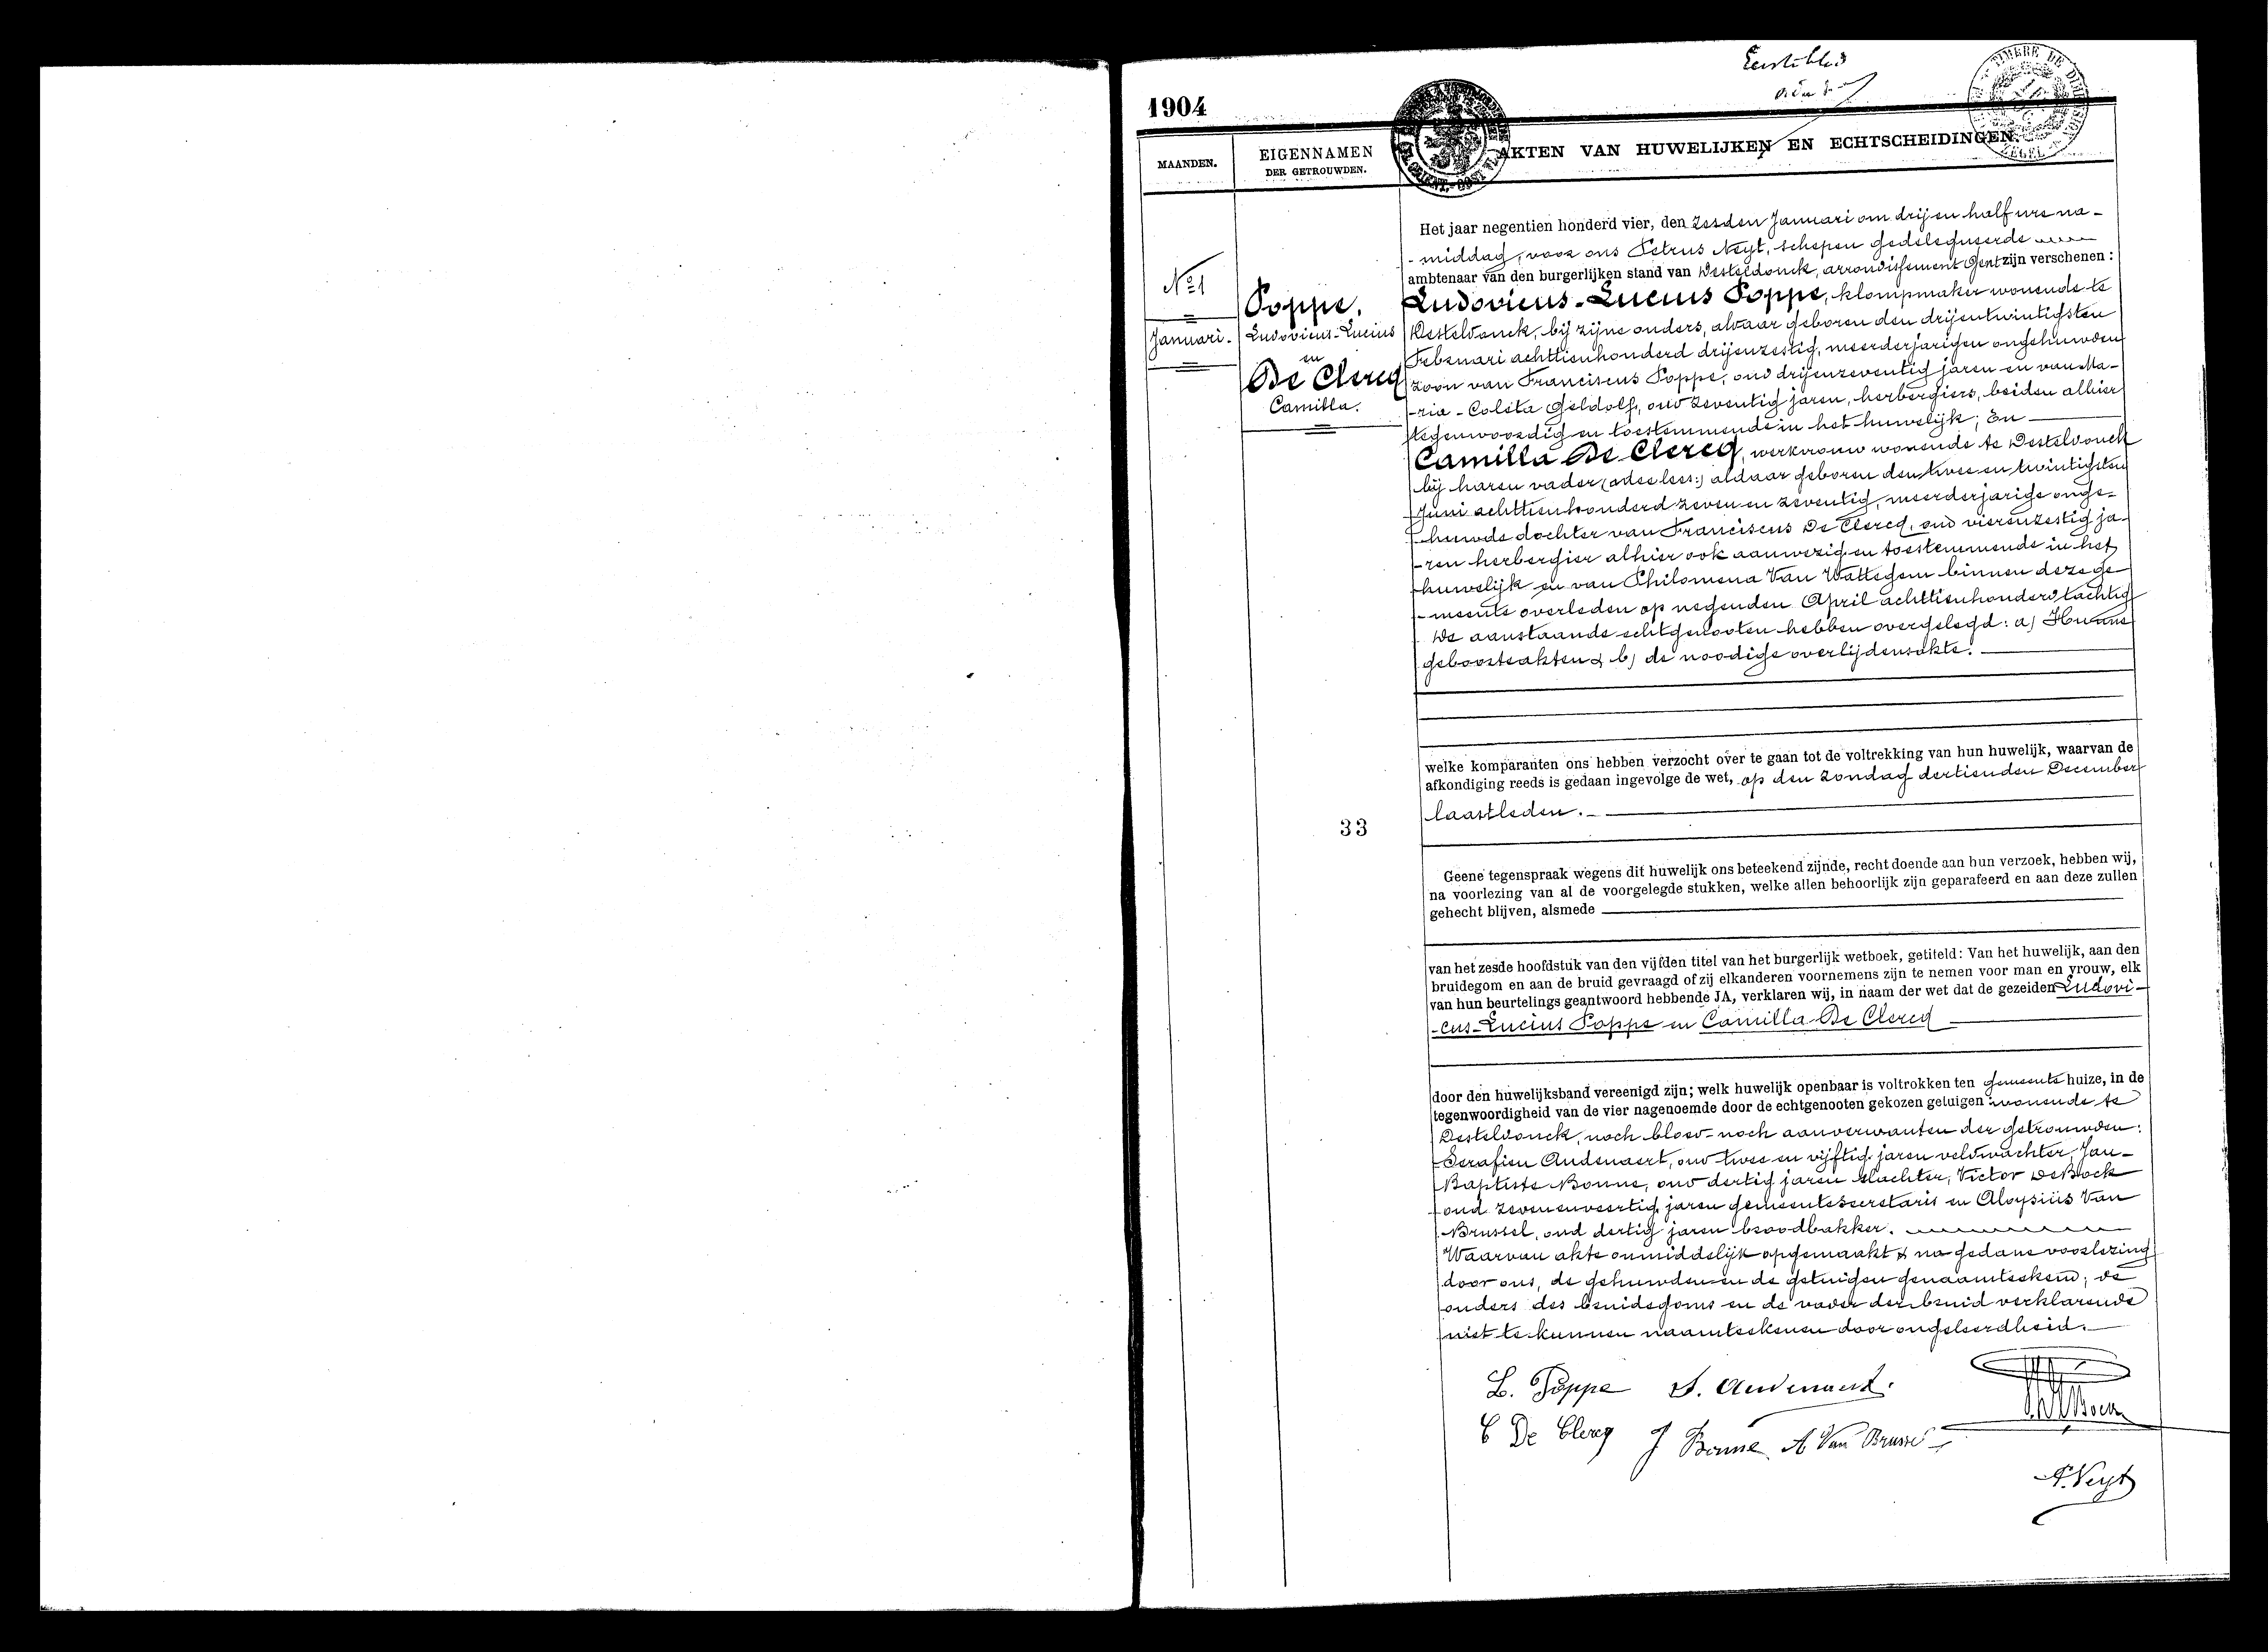 Eerste blad
1904
TIMBRE DE DIMENSION
ZEGEL
MAANDEN.
EIGENNAMEN
DER GETROUWDEN.
AKTEN VAN HUWELIJKEN EN ECHTSCHEIDINGEN.
No 1
Januari.
Poppe,
Ludovicus-Lucius
en
De Clercq
Camilla.
Het jaar negentien honderd vier, den zesden Januari om drij en half ure na-
-middag, voor ons Petrus Neyt, schepen gedelegueerde
ambtenaar van den burgerlijken stand van Desteldonck, arrondissement Gent zijn verschenen :
Ludovicus-Lucius Poppe, klompmaker wonende te
Desteldonck, bij zijne ouders, alwaar geboren den drijentwintigsten
Februari achttienhonderd drijenzestig, meerderjarigen ongehuwden
zoon van Franciscus Poppe, oud drijenzeventig jaren en van Ma-
-ria-Coleta Geldolf, oud zeventig jaren, herbergiers, beiden alhier
tegenwoordig en toestemmende in het huwelijk; En
Camilla De Clercq, werkvrouw wonende te Desteldonck
bij haren vader, aldaar geboren den twee en twintigsten
Juni achttienhonderd zeven en zeventig, meerderjarige onge-
huwde dochter van Franciscus De Clercq, oud vierenzestig ja-
-ren herbergier alhier ook aanwezig en toestemmende in het
huwelijk en van Philomena Van Wattegem binnen deze ge-
-meente overleden op negenden April achttienhonderd tachtig
De aanstaande echtgenooten hebben overgelegd: a) Hunne
geboorteakten & b) de noodige overlijdensakte.
welke komparanten ons hebben verzocht over te gaan tot de voltrekking van hun huwelijk, waarvan de
afkondiging reeds is gedaan ingevolge de wet, op den zondag dertienden December
laastleden.
33
Geene tegenspraak wegens dit huwelijk ons beteekend zijnde, recht doende aan hun verzoek, hebben wij,
na voorlezing van al de voorgelegde stukken, welke allen behoorlijk zijn geparafeerd en aan deze zullen
gehecht blijven, alsmede
van het zesde hoofdstuk van den vijfden titel van het burgerlijk wetboek, getiteld: Van het huwelijk, aan den
bruidegom en aan de bruid gevraagd of zij elkanderen voornemens zijn te nemen voor man en vrouw, elk
van hun beurtelings geantwoord hebbende JA, verklaren wij, in naam der wet dat de gezeiden Ludovi-
-cus-Lucius Poppe en Camilla De Clercq
door den huwelijksband vereenigd zijn; welk huwelijk openbaar is voltrokken ten gemeente huize, in de
tegenwoordigheid van de vier nagenoemde door de echtgenooten gekozen getuigen wonende te
Desteldonck, noch bloed- noch aanverwanten der getrouwden:
Serafien Audenaert, oud twee en vijftig jaren veldwachter, Jan-
Baptiste Bonne, oud dertig jaren slachter, Victor De Bock
oud zevenenveertig jaren gemeentesecretaris en Aloysiüs Van
Brussel, oud dertig jaren broodbakker.
Waarvan akte onmiddelijk opgemaakt & na gedane voorlezing
door ons, de gehuwden en de getuigen genaamteekend; de
ouders des bruidegoms en de vader der bruid verklarende
niet te kunnen naamteekenen door ongeleerdheid.
L. Poppe S. Audenaert.
C De Clercq J Bonne A Van Brussel
P. Neyt